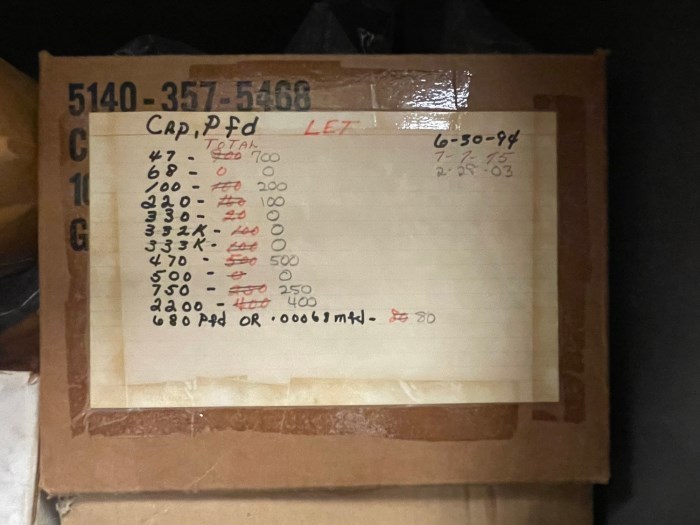 5140-357-5468
C
10
G
CAP, Pfd LET 6-30-94
TOTAL 7-7-95
47 - 700 2-28-03
68 - 0 0
100 - 200
220 - 100
330 - 20 0
332K - 100 0
333K - 100 0
470 - 500 500
500 - 0 0
750 - 250
2200 - 400 400
680 Pfd OR .00068 mfd - 80 80